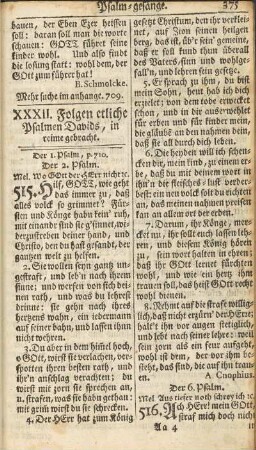 Psalm-gesänge. 375
bauen, der Eben Ezer heissen
soll: daran soll man die worte
schauen: GOTT führet seine
kinder wohl. Und also findet
die losung statt: wohl dem, der
GOtt zum führer hat!
B. Schmolcke.
Mehr suche im anhange. 709.
XXXII. Folgen etliche
Psalmen Davids, in
reime gebracht.
Der 1. Psalm, p. 710.
Der 2. Psalm.
Mel. Wo GOtt der HErr nicht rc.
515. Hilf, GOTT, wie geht
das immer zu, daß
alles volck so grimmet? Für-
sten und Könige habn kein' ruh,
mit einander sind sie g'sinnet, wi-
derzustreben deiner hand, und
Christo, den du hast gesandt, der
gantzen welt zu helfen.
2. Sie wollen seyn gantz un-
gestraft, und leb'n nach ihrem
sinne: und werfen von sich dei-
nen rath, und was du lehrest
drinne: sie gehn nach ihres
hertzens wahn, ein iedermann
auf seiner bahn, und lassen ihm
nicht wehren.
3. Du aber in dem himel hoch,
o GOtt, wirst sie verlachen, ver-
spotten ihren besten rath, und
ihr'n anschlag verachten: du
wirst mit zorn sie sprechen an,
u. strafen, was sie habn gethan:
mit grim wirst du sie schrecken.
4. Der HErr hat zum König
gesetzt Christum, den ihr verklei-
net, auf Zion seinen heilgen
berg, das ist über sein' gemein,
daß er soll kund thun überall
des Vaters sinn und wohlge-
fall'n, und lehren sein gesetze.
5. Er sprach zu ihm: du bist
mein Sohn, heut hab ich dich
gezeuget: von dem tode erwecket
schon, und in dir auch geneiget
für erben und für kinder mein,
die gläuben an den nahmen dein,
daß sie all durch dich leben.
6. Die heyden will ich schen-
cken dir, mein kind, zu einem er-
be, daß du mit deinem wort in
ihn'n die fleisches-lust verder-
best: ein neu volck solt du richten
an, das meinen nahmen preisen
kan an allen ort der erden.
7. Darum, ihr Könge, mer-
cket nu, ihr sollt euch lassen leh-
ren, und diesem König hören
zu, sein wort halten in ehren:
daß ihr GOtt lernet fürchten
wohl, und wie ein hertz ihm
trauen soll, das heist GOtt recht
dienen.
8. Nehmt auf die strafe willig-
lich, daß nicht erzürn' der HErre;
habt ihn vor augen stetiglich,
und lebt nach seiner lehre: weñ
sein zorn als ein feur aufgeht,
wohl ist dem, der vor ihm be-
steht, das sind, die auf ihn trauen.
A. Cnophius.
Der 6. Psalm.
Mel. Aus tiefer noth schrey ich rc.
516. Ach HErr! mein GOtt,
straf mich doch nicht
Aa 4